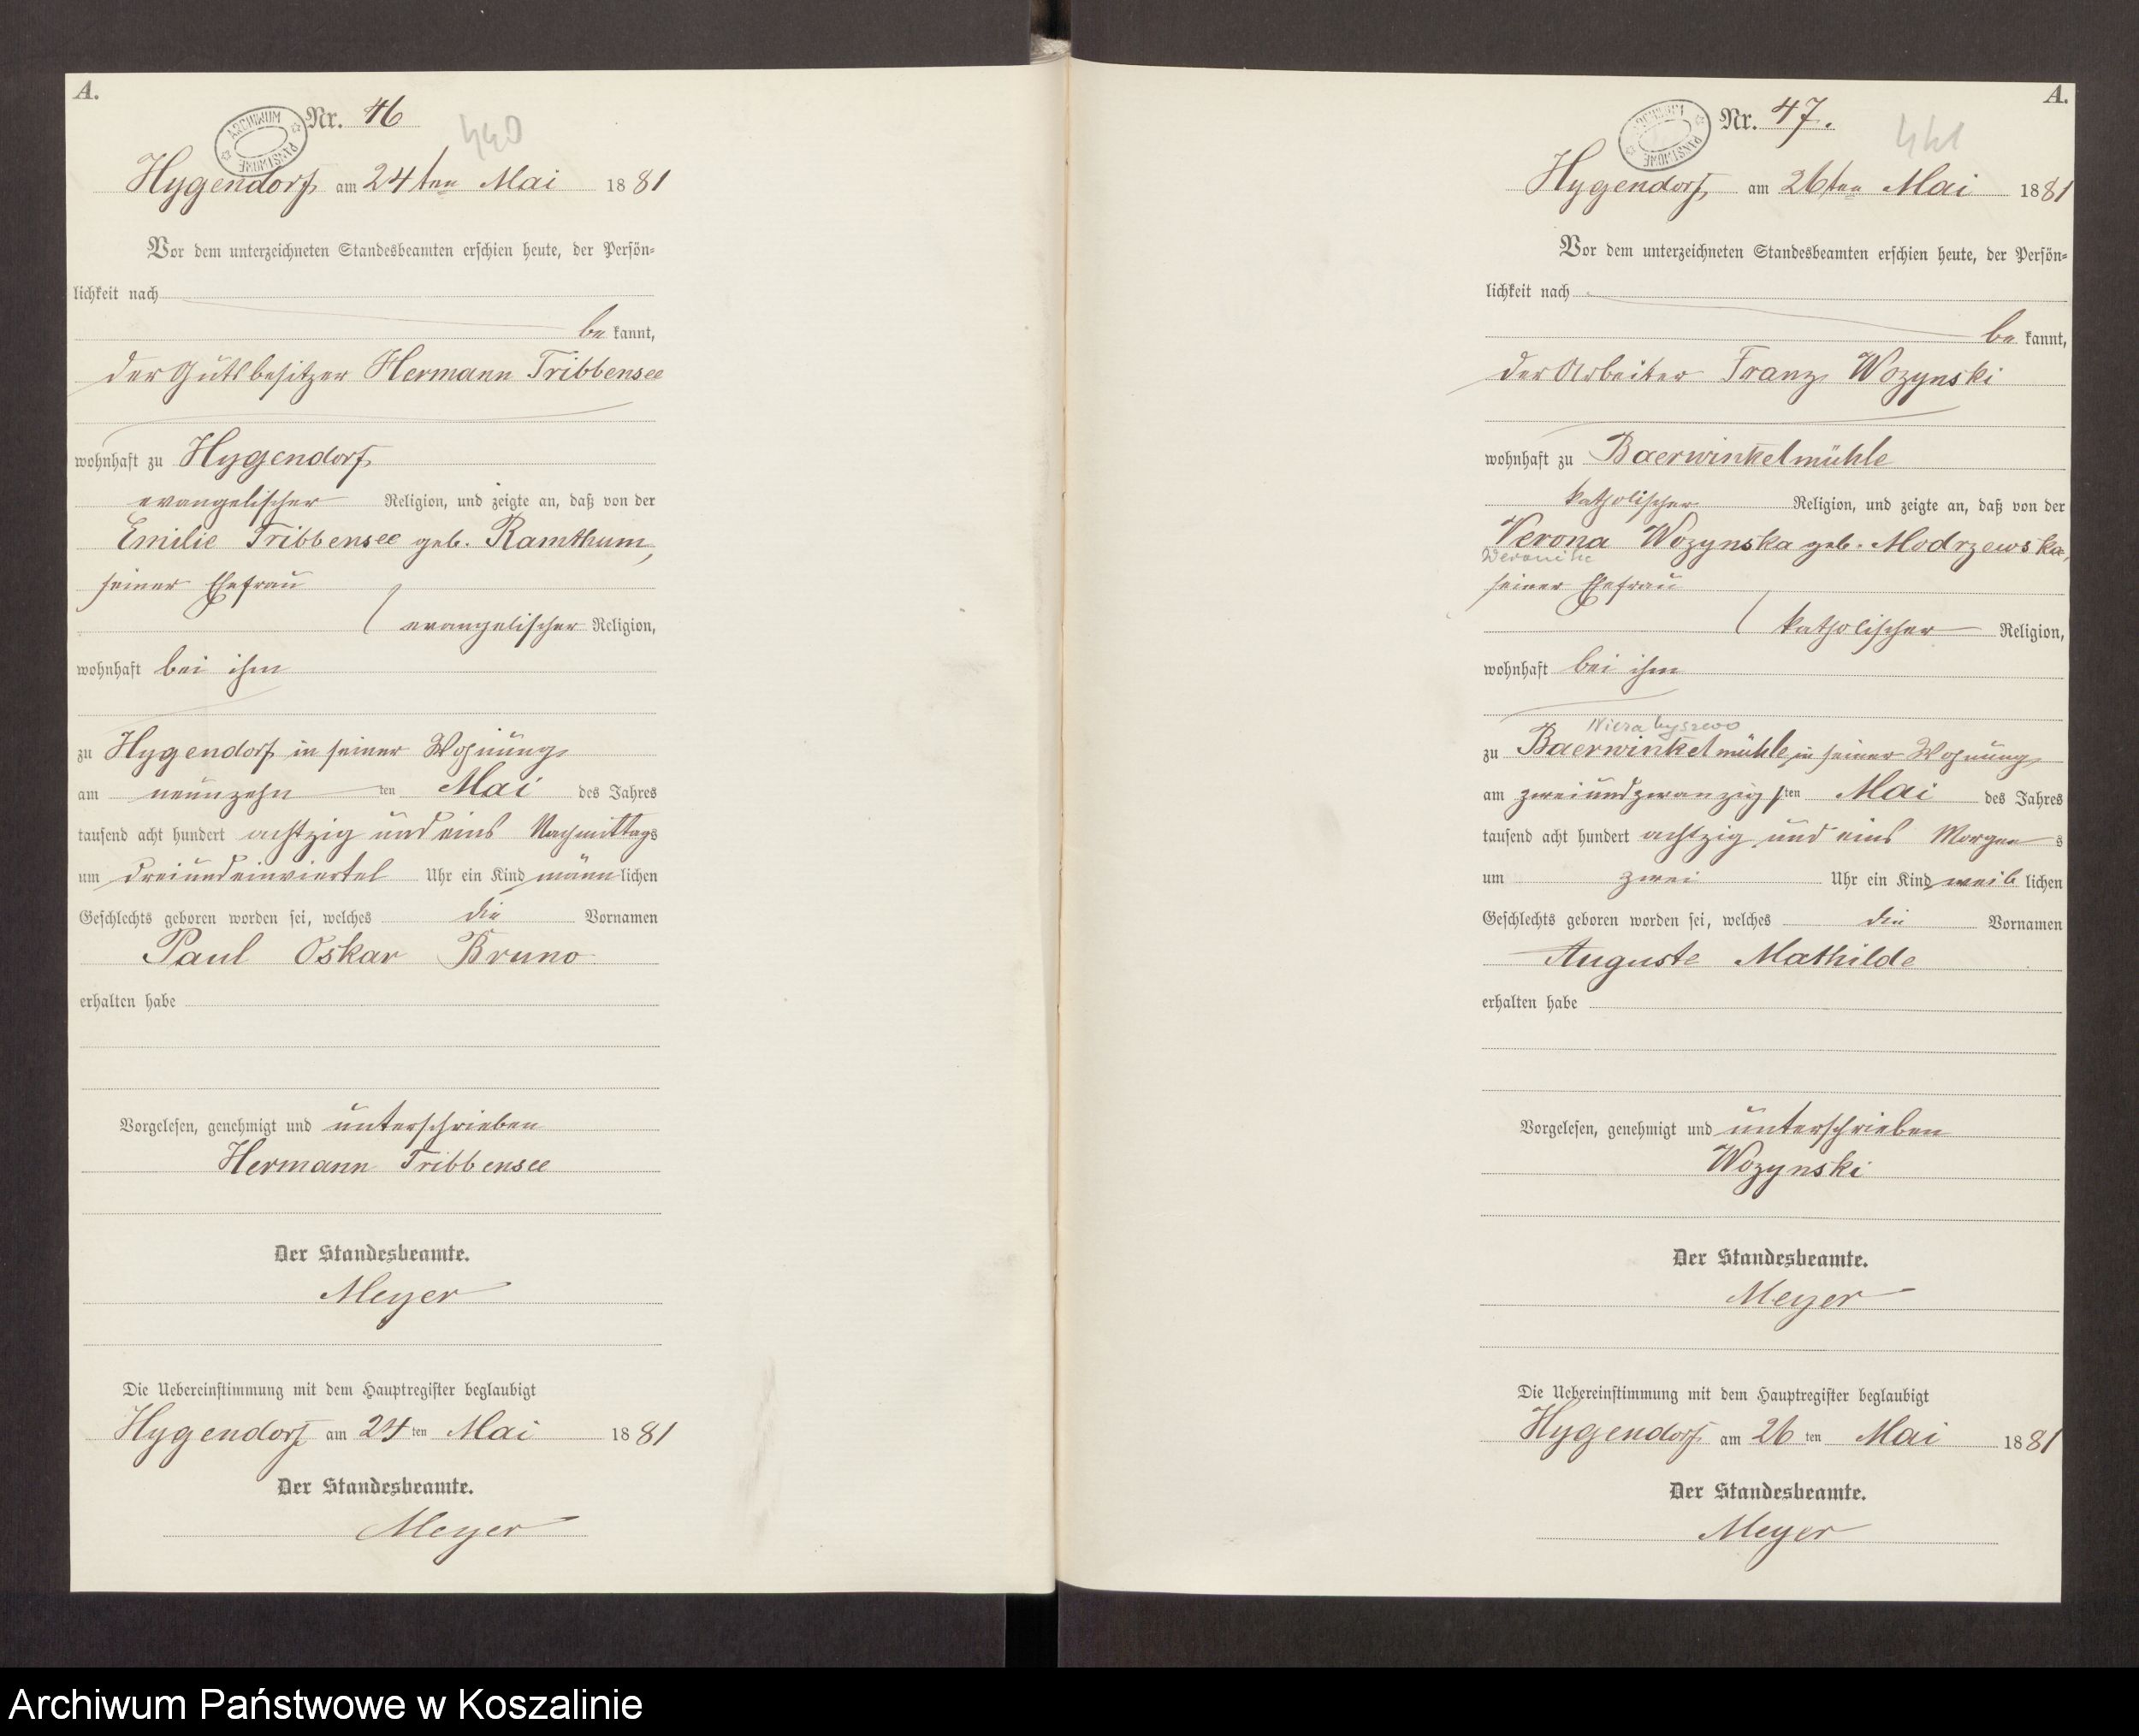 A.
ARCHIWUM PAŃSTWOWE
Nr. 46
440
Hygendorf am 24ten Mai 1881
Vor dem unterzeichneten Standesbeamten erschien heute, der Persön=
lichkeit nach
be kannt,
der Gutsbesitzer Hermann Tribbensee
wohnhaft zu Hygendorf
evangelischer Religion, und zeigte an, daß von der
Emilie Tribbensee geb. Ramthum,
seiner Ehefrau
evangelischer Religion,
wohnhaft bei ihm
zu Hygendorf in seiner Wohnung
am neunzehn ten Mai des Jahres
tausend acht hundert achtzig und eins Nachmittags
um dreiundeinviertel Uhr ein Kind männlichen
Geschlechts geboren worden sei, welches die Vornamen
Paul Oskar Bruno
erhalten habe
Vorgelesen, genehmigt und unterschrieben
Hermann Tribbensee
Der Standesbeamte.
Meyer
Die Uebereinstimmung mit dem Hauptregister beglaubigt
Hygendorf am 24ten Mai 1881
Der Standesbeamte.
Meyer
A.
ARCHIWUM PAŃSTWOWE
Nr. 47.
441
Hygendorf, am 26ten Mai 1881
Vor dem unterzeichneten Standesbeamten erschien heute, der Persön=
lichkeit nach
be kannt,
der Arbeiter Franz Wozynski
wohnhaft zu Baerwinkelmühle
katholischer Religion, und zeigte an, daß von der
Verona Wozynska geb. Modrzewska,
Weronike
seiner Ehefrau
katholischer Religion,
wohnhaft bei ihm
zu Baerwinkelmühle in seiner Wohnung
am zweiundzwanzigsten Mai des Jahres
tausend acht hundert achtzig und eins Morgens
um zwei Uhr ein Kind weiblichen
Geschlechts geboren worden sei, welches die Vornamen
Auguste Mathilde
erhalten habe
Vorgelesen, genehmigt und unterschrieben
Wozynski
Der Standesbeamte.
Meyer
Die Uebereinstimmung mit dem Hauptregister beglaubigt
Hygendorf am 26ten Mai 1881
Der Standesbeamte.
Meyer
Archiwum Państwowe w Koszalinie